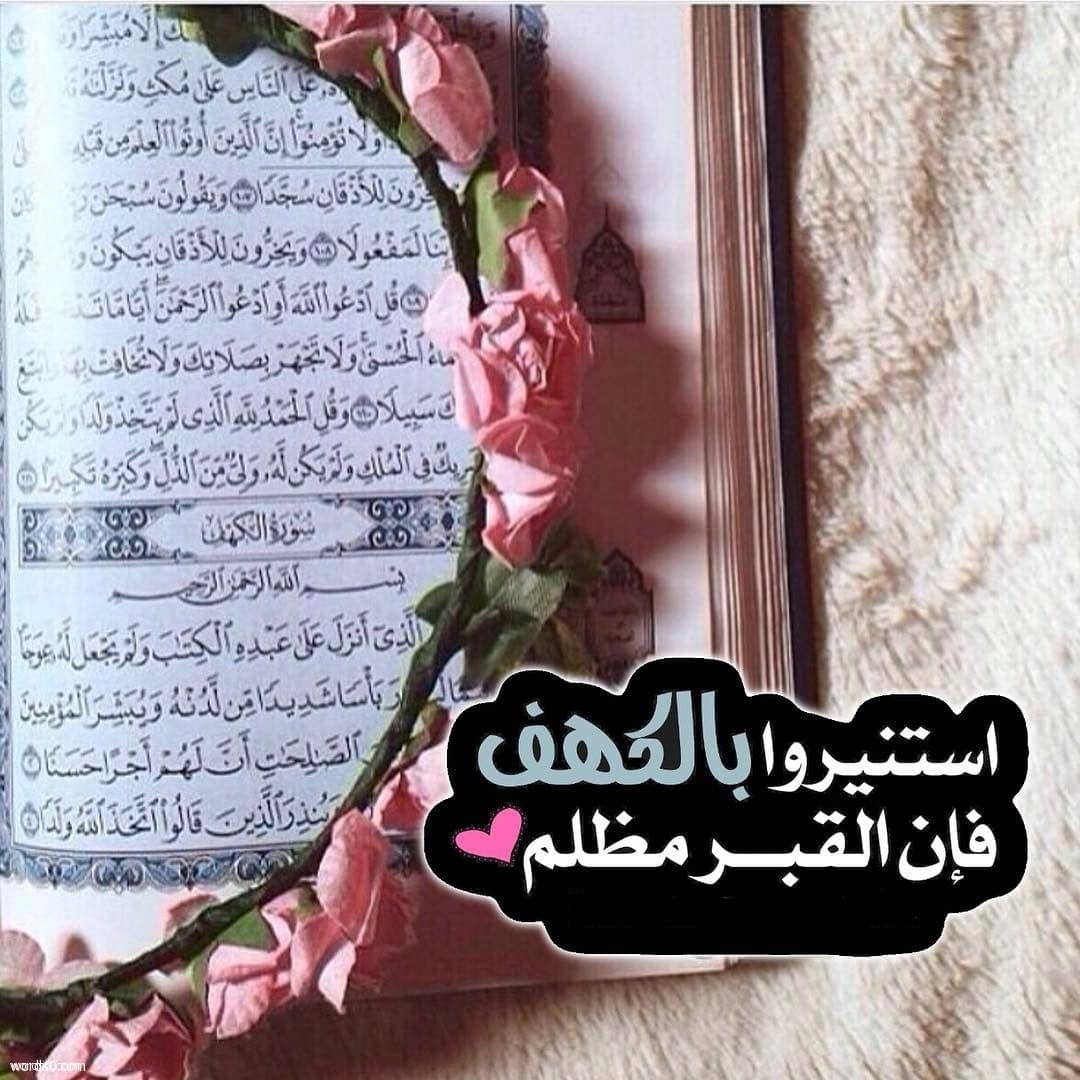 إلا مبشرا
على ٱلناس على مكث ونزلنه
أولا تؤمنوا إن ٱلذين أوتوا ٱلعلم من قبله
للأذقان سجدا ١٠٧ ويقولون سبحن
لمفعولا ١٠٨ ويخرون للأذقان يبكون
قل ٱدعوا ٱلله أو ٱدعوا ٱلرحمن أيا ما
ٱلحسنى ولا تجهر بصلاتك ولا تخافت بها وٱبتغ
سبيلا ١١٠ وقل ٱلحمد لله ٱلذى لم يتخذ ولدا ولم يكن
فى ٱلملك ولم يكن له ولى من ٱلذل وكبره تكبيرا ١١١
سورة الكهف
بسم ٱلله ٱلرحمن ٱلرحيم
ٱلذى أنزل على عبده ٱلكتب ولم يجعل له عوجا
بأسا شديدا من لدنه ويبشر ٱلمؤمنين
ٱلصلحت أن لهم أجرا حسنا ٢
وينذر ٱلذين قالوا ٱتخذ ٱلله ولدا ٤
استنيروا بالكهف
فإن القبر مظلم